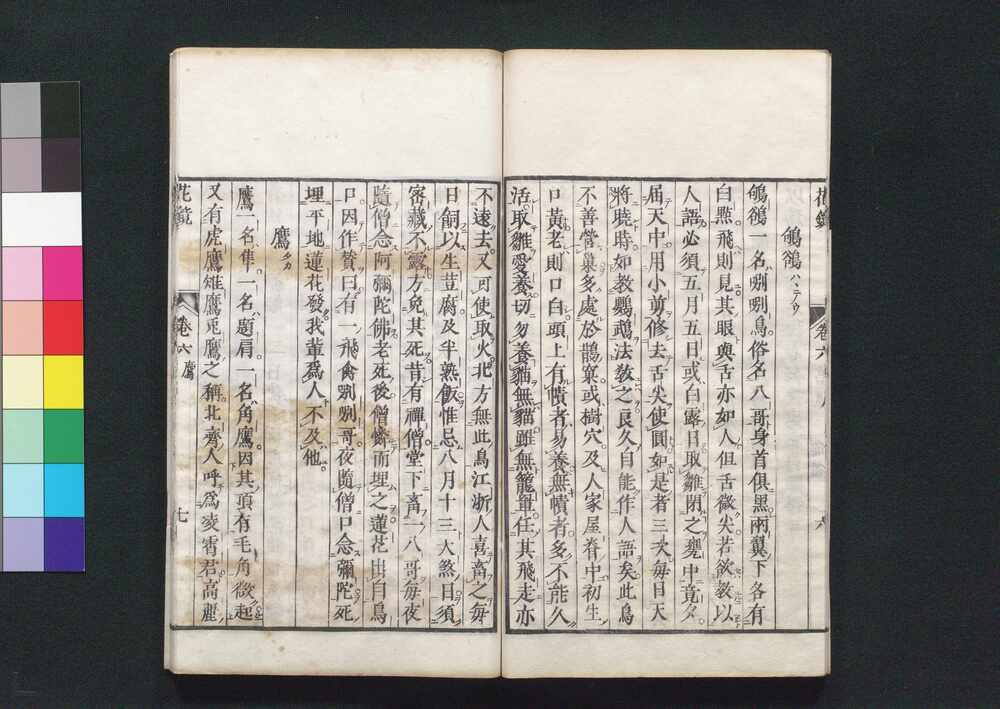 花鏡 卷六 六
鴝鵒 ハヽテウ
鴝鵒一名唎唎鳥俗名八哥身首俱黑兩翼下各有
白點飛則見其眼與舌亦如人但舌微尖若欲教以
人語必須五月五日或白露日取雛閉之甕中竟夕
屆天中用小剪修去舌尖使圓如是者三次每日天
將曉時如教鸚鵡法教之良久自能作人語矣此鳥
不善營巢多處於鵲窠或樹穴及人家屋脊中初生
口黃老則口白頭上有幘者易養無幘者多不能久
活取雛愛養切勿養貓無貓雖無籠罩任其飛走亦
不遠去又可使取火北方無此鳥江浙人喜畜之每
日飼以生荳腐及半熟飯惟忌八月十三大煞日須
密藏不露方免其死昔有禪僧堂下畜一八哥每夜
隨僧念阿彌陀佛老死後僧憐而埋之蓮花出自鳥
口因作贊曰有一飛禽唎唎哥夜隨僧口念彌陀死
埋平地蓮花發我輩爲人不及他
鷹 タカ
鷹一名隼一名題肩一名角鷹因其項有毛角微起
又有虎鷹雉鷹兎鷹之稱北齊人呼爲凌霄君高麗
花鏡 卷六 鷹 七